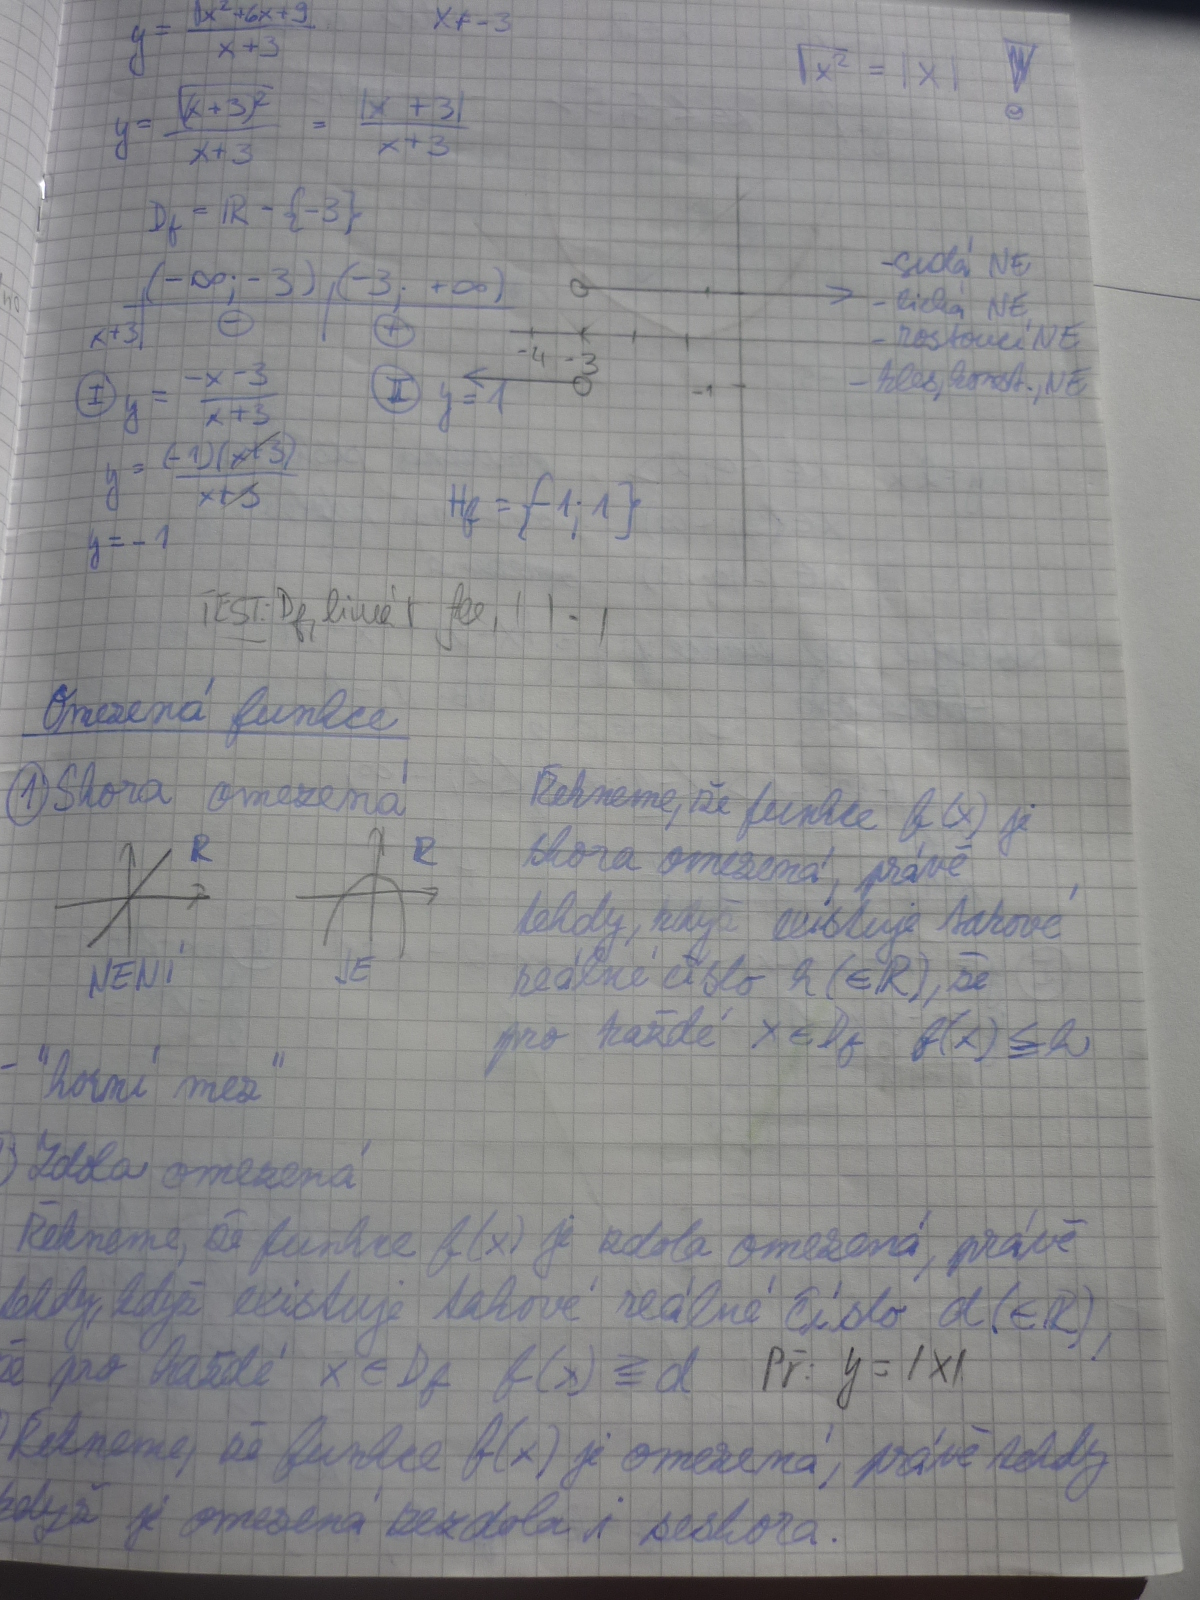 y = √x²+6x+9 / x+3    x ≠ -3
√x² = |x| !
y = √(x+3)² / x+3 = |x+3| / x+3
Df = R - {-3}
(-∞; -3) (-3; +∞)
x+3 ⊖ ⊕
-4 -3
-1
- sudá NE
- lichá NE
- rostoucí NE
- kles., konst., NE
I y = -x-3 / x+3
II y = 1
y = (-1)(x+3) / x+3
y = -1
Hf = {-1; 1}
TEST: Df, lineár fce, | | - |
Omezená funkce
1 Shora omezená
R R
NENÍ JE
- "horní mez"
Řekneme, že funkce f(x) je
shora omezená, právě
tehdy, když existuje takové
reálné číslo h (∈R), že
pro každé x ∈ Df f(x) ≦ h
) Zdola omezená
Řekneme, že funkce f(x) je zdola omezená, právě
tehdy, když existuje takové reálné číslo d (∈R),
že pro každé x ∈ Df f(x) ≧ d Př: y = |x|
) Řekneme, že funkce f(x) je omezená, právě tehdy
když je omezená zezdola i seshora.